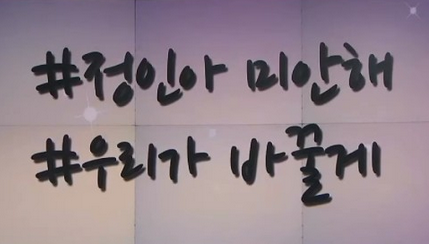 #정인아 미안해
#우리가 바꿀게